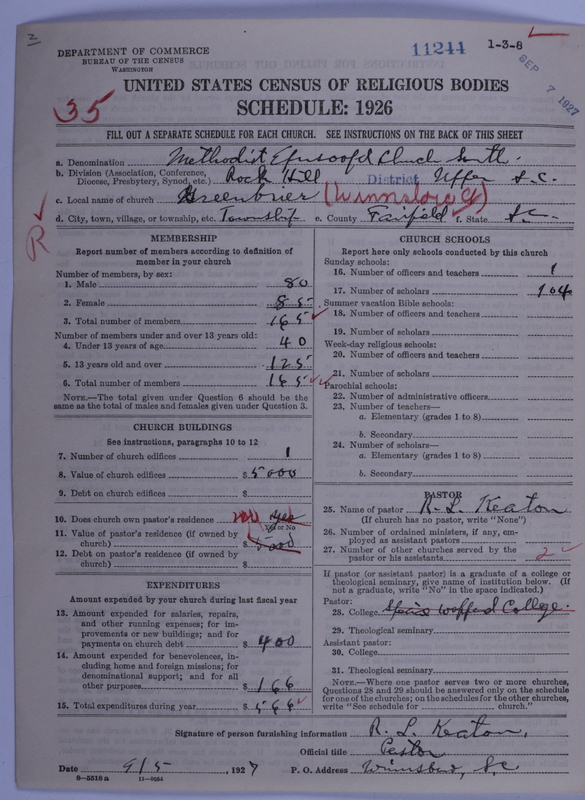 2
DEPARTMENT OF COMMERCE
BUREAU OF THE CENSUS
WASHINGTON
11244
1-3-8
SEP 7 1927
UNITED STATES CENSUS OF RELIGIOUS BODIES
SCHEDULE: 1926
35
FILL OUT A SEPARATE SCHEDULE FOR EACH CHURCH. SEE INSTRUCTIONS ON THE BACK OF THIS SHEET
a. Denomination Methodist Episcopal Church South.
b. Division (Association, Conference,
Diocese, Presbytery, Synod, etc.) Rock Hill District Upper S.C.
c. Local name of church Greenbrier (Winnsboro
d. City, town, village, or township, etc. Township e. County Fairfield f. State S.C.
R
MEMBERSHIP
Report number of members according to definition of
member in your church
Number of members, by sex:
1. Male 80
2. Female 85
3. Total number of members 165
Number of members under and over 13 years old:
4. Under 13 years of age 40
5. 13 years old and over 125
6. Total number of members 165
NOTE.—The total given under Question 6 should be the
same as the total of males and females given under Question 3.
CHURCH BUILDINGS
See instructions, paragraphs 10 to 12
7. Number of church edifices 1
8. Value of church edifices $ 5000
9. Debt on church edifices $
10. Does church own pastor's residence no yes
Yes or No
11. Value of pastor's residence (if owned by
church) $ 5000
12. Debt on pastor's residence (if owned by
church) $
EXPENDITURES
Amount expended by your church during last fiscal year
13. Amount expended for salaries, repairs,
and other running expenses; for im-
provements or new buildings; and for
payments on church debt $ 400
14. Amount expended for benevolences, in-
cluding home and foreign missions; for
denominational support; and for all
other purposes $ 166
15. Total expenditures during year $ 566
CHURCH SCHOOLS
Report here only schools conducted by this church
Sunday schools:
16. Number of officers and teachers 1
17. Number of scholars 104
Summer vacation Bible schools:
18. Number of officers and teachers
19. Number of scholars
Week-day religious schools:
20. Number of officers and teachers
21. Number of scholars
Parochial schools:
22. Number of administrative officers
23. Number of teachers—
a. Elementary (grades 1 to 8)
b. Secondary
24. Number of scholars—
a. Elementary (grades 1 to 8)
b. Secondary
PASTOR
25. Name of pastor R. L. Keaton
(If church has no pastor, write "None")
26. Number of ordained ministers, if any, em-
ployed as assistant pastors
27. Number of other churches served by the
pastor or his assistants 2
If pastor (or assistant pastor) is a graduate of a college or
theological seminary, give name of institution below. (If
not a graduate, write "No" in the space indicated.)
Pastor:
28. College Wofford College.
29. Theological seminary
Assistant pastor:
30. College
31. Theological seminary
NOTE.—Where one pastor serves two or more churches,
Questions 28 and 29 should be answered only on the schedule
for one of the churches; on the schedules for the other churches,
write "See schedule for church."
Signature of person furnishing information R. L. Keaton,
Official title Pastor
Date 9/5, 1927 P. O. Address Winnsboro, S.C.
8-5518a 11-9354